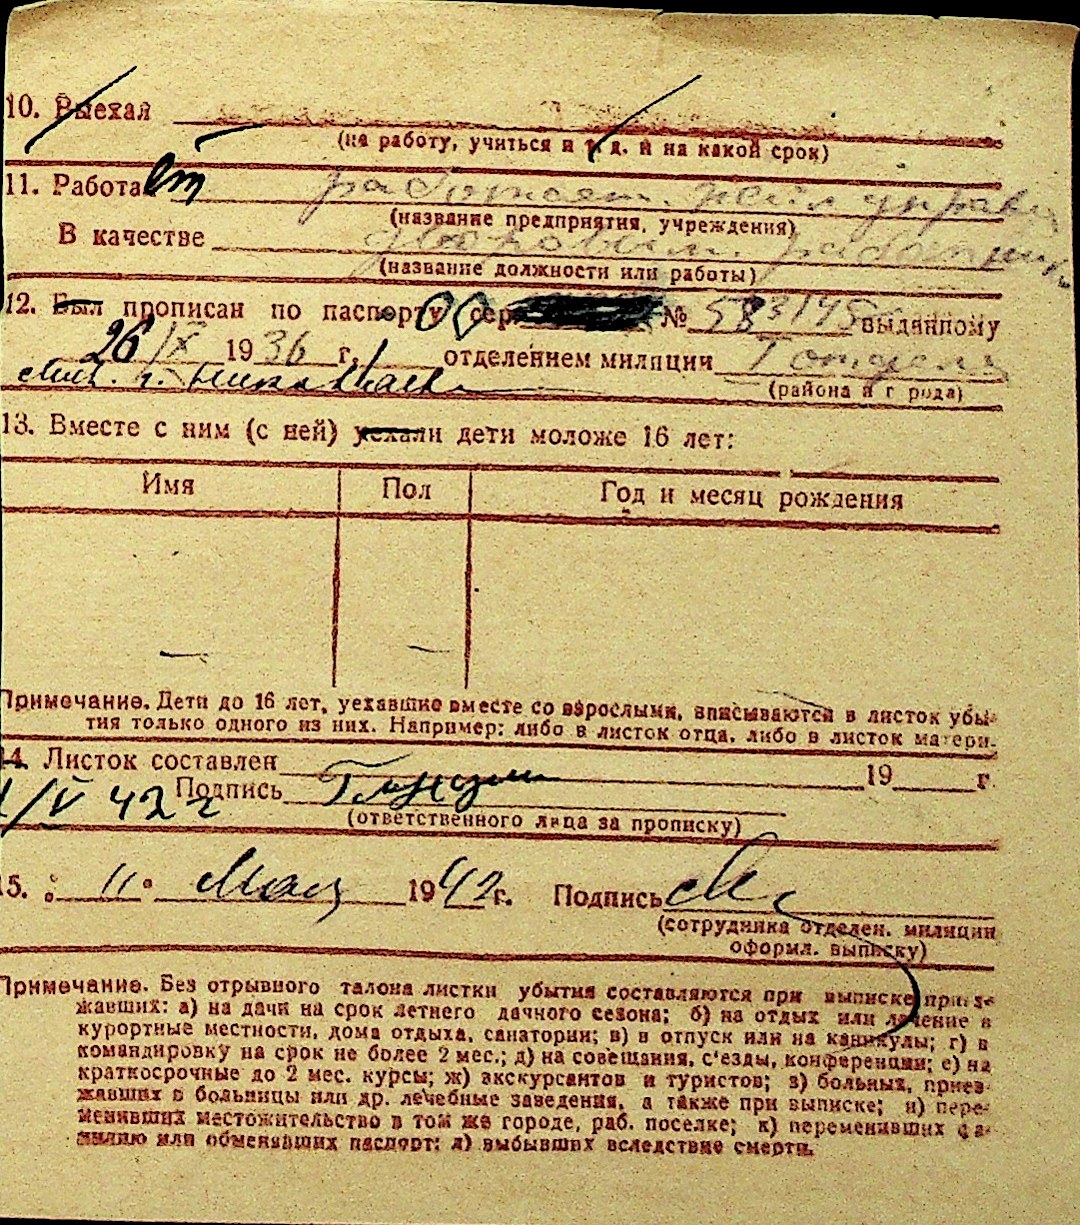 10. Выехал
(на работу, учиться и т. д. и на какой срок)
11. Работает работает. жил управ
(название предприятия, учреждения)
В качестве дворовым. работник
(название должности или работы)
12. Был прописан по паспорту сер. № 583145 выданному
26 IX 1936 г. отделением милиции 1 отдел
мил. г.
(района и города)
13. Вместе с ним (с ней) уехали дети моложе 16 лет:
Имя Пол Год и месяц рождения
— —
Примечание. Дети до 16 лет, уехавшие вместе со взрослыми, вписываются в листок убы-
тия только одного из них. Например: либо в листок отца, либо в листок матери.
14. Листок составлен 19 г.
/V 42 г Подпись
(ответственного лица за прописку)
15. „ 11 " Мая 1942 г. Подпись
(сотрудника отделен. милиции
оформл. выписку)
Примечание. Без отрывного талона листки убытия составляются при выписке приез-
жавших: а) на дачи на срок летнего дачного сезона; б) на отдых или лечение в
курортные местности, дома отдыха, санатории; в) в отпуск или на каникулы; г) в
командировку на срок не более 2 мес.; д) на совещания, с'езды, конференции; е) на
краткосрочные до 2 мес. курсы; ж) экскурсантов и туристов; з) больных, приез-
жавших в больницы или др. лечебные заведения, а также при выписке; и) пере-
менивших местожительство в том же городе, раб. поселке; к) переменивших фа-
милию или обменявших паспорт; л) выбывших вследствие смерти.